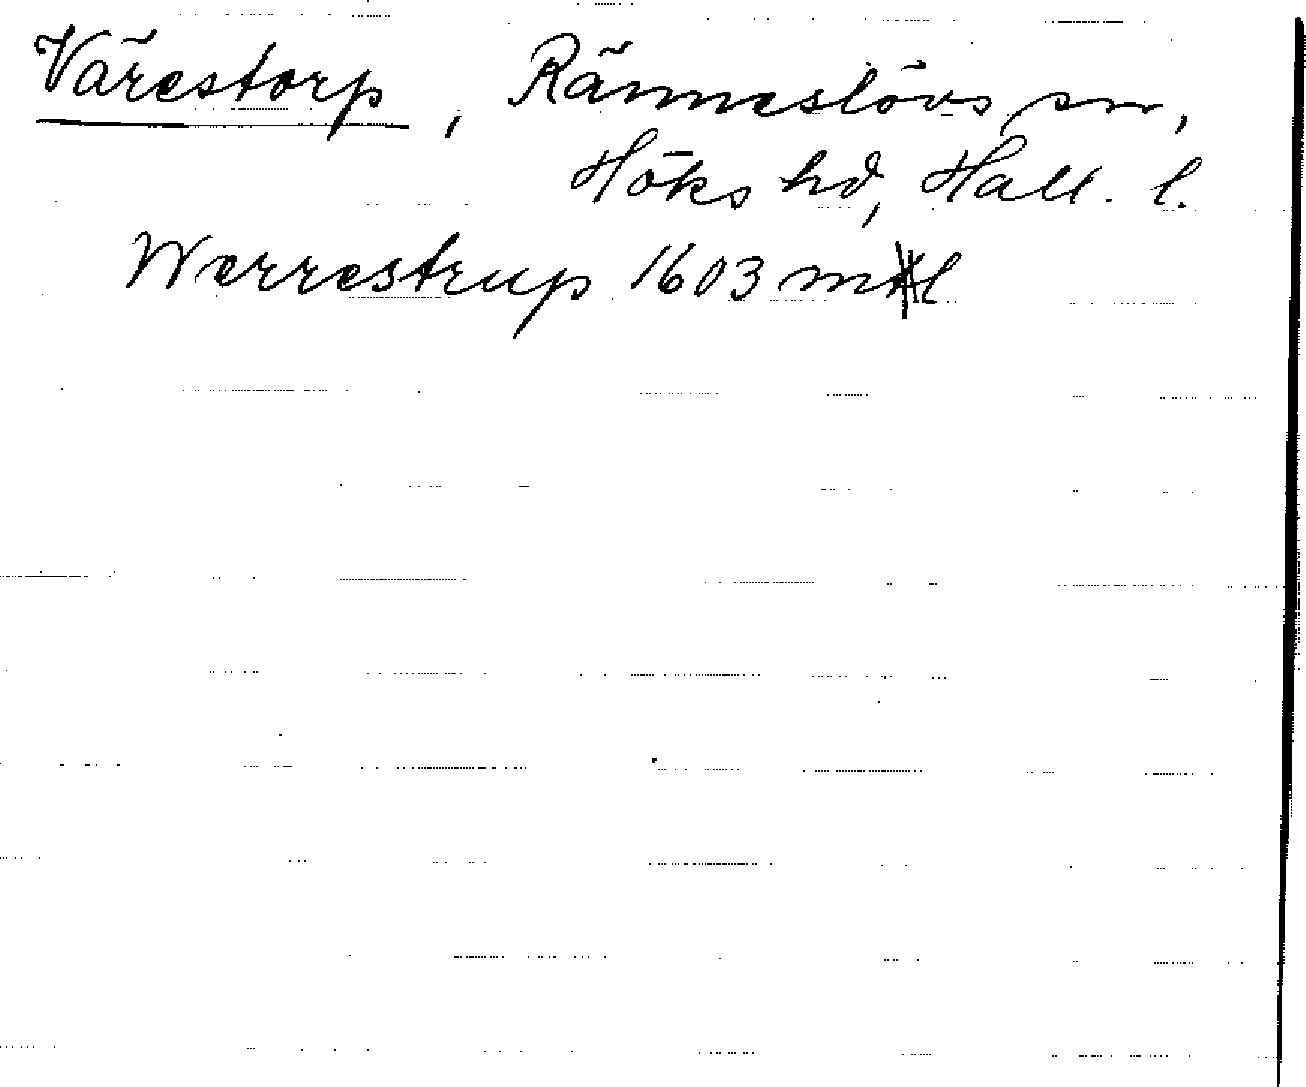 Värestorp, Ränneslövs sn,
Höks hd, Hall. l.
Werrestrup 1603 ml